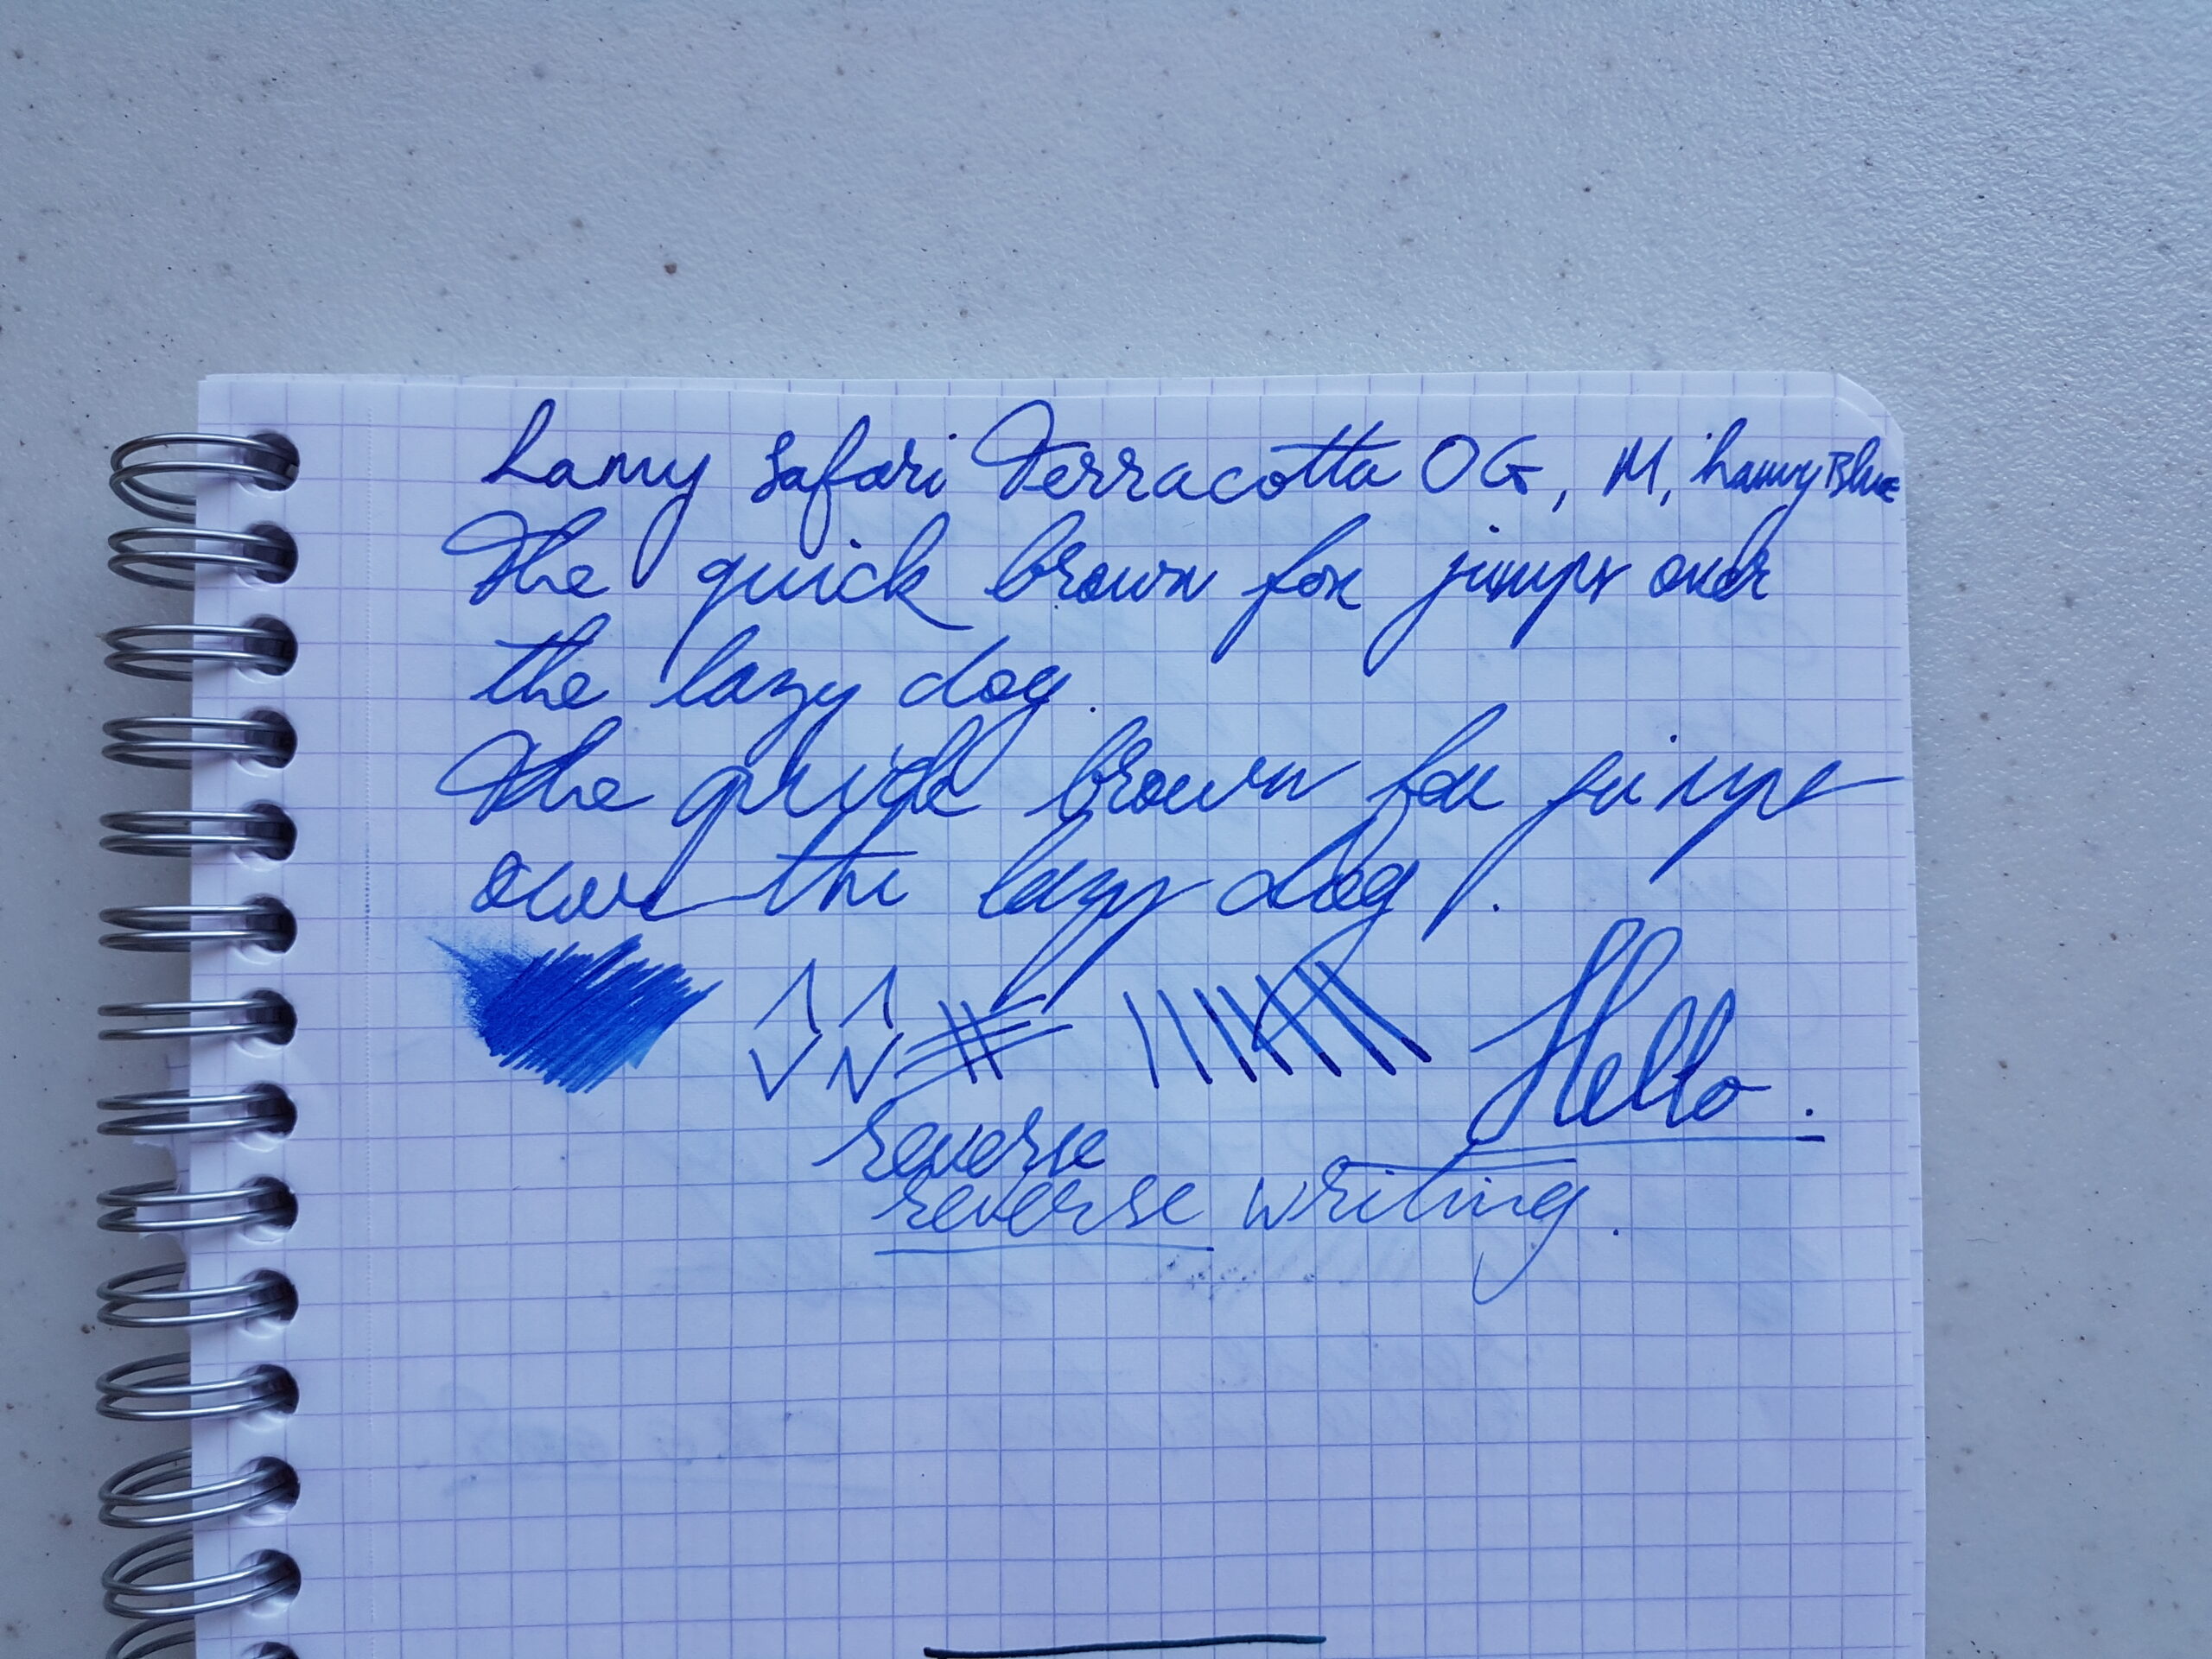 Lamy Safari Terracotta OG, M, Lamy Blue
The quick brown fox jumps over
the lazy dog.
The quick brown fox jumps
over the lazy dog.
Hello.
reverse
reverse writing.